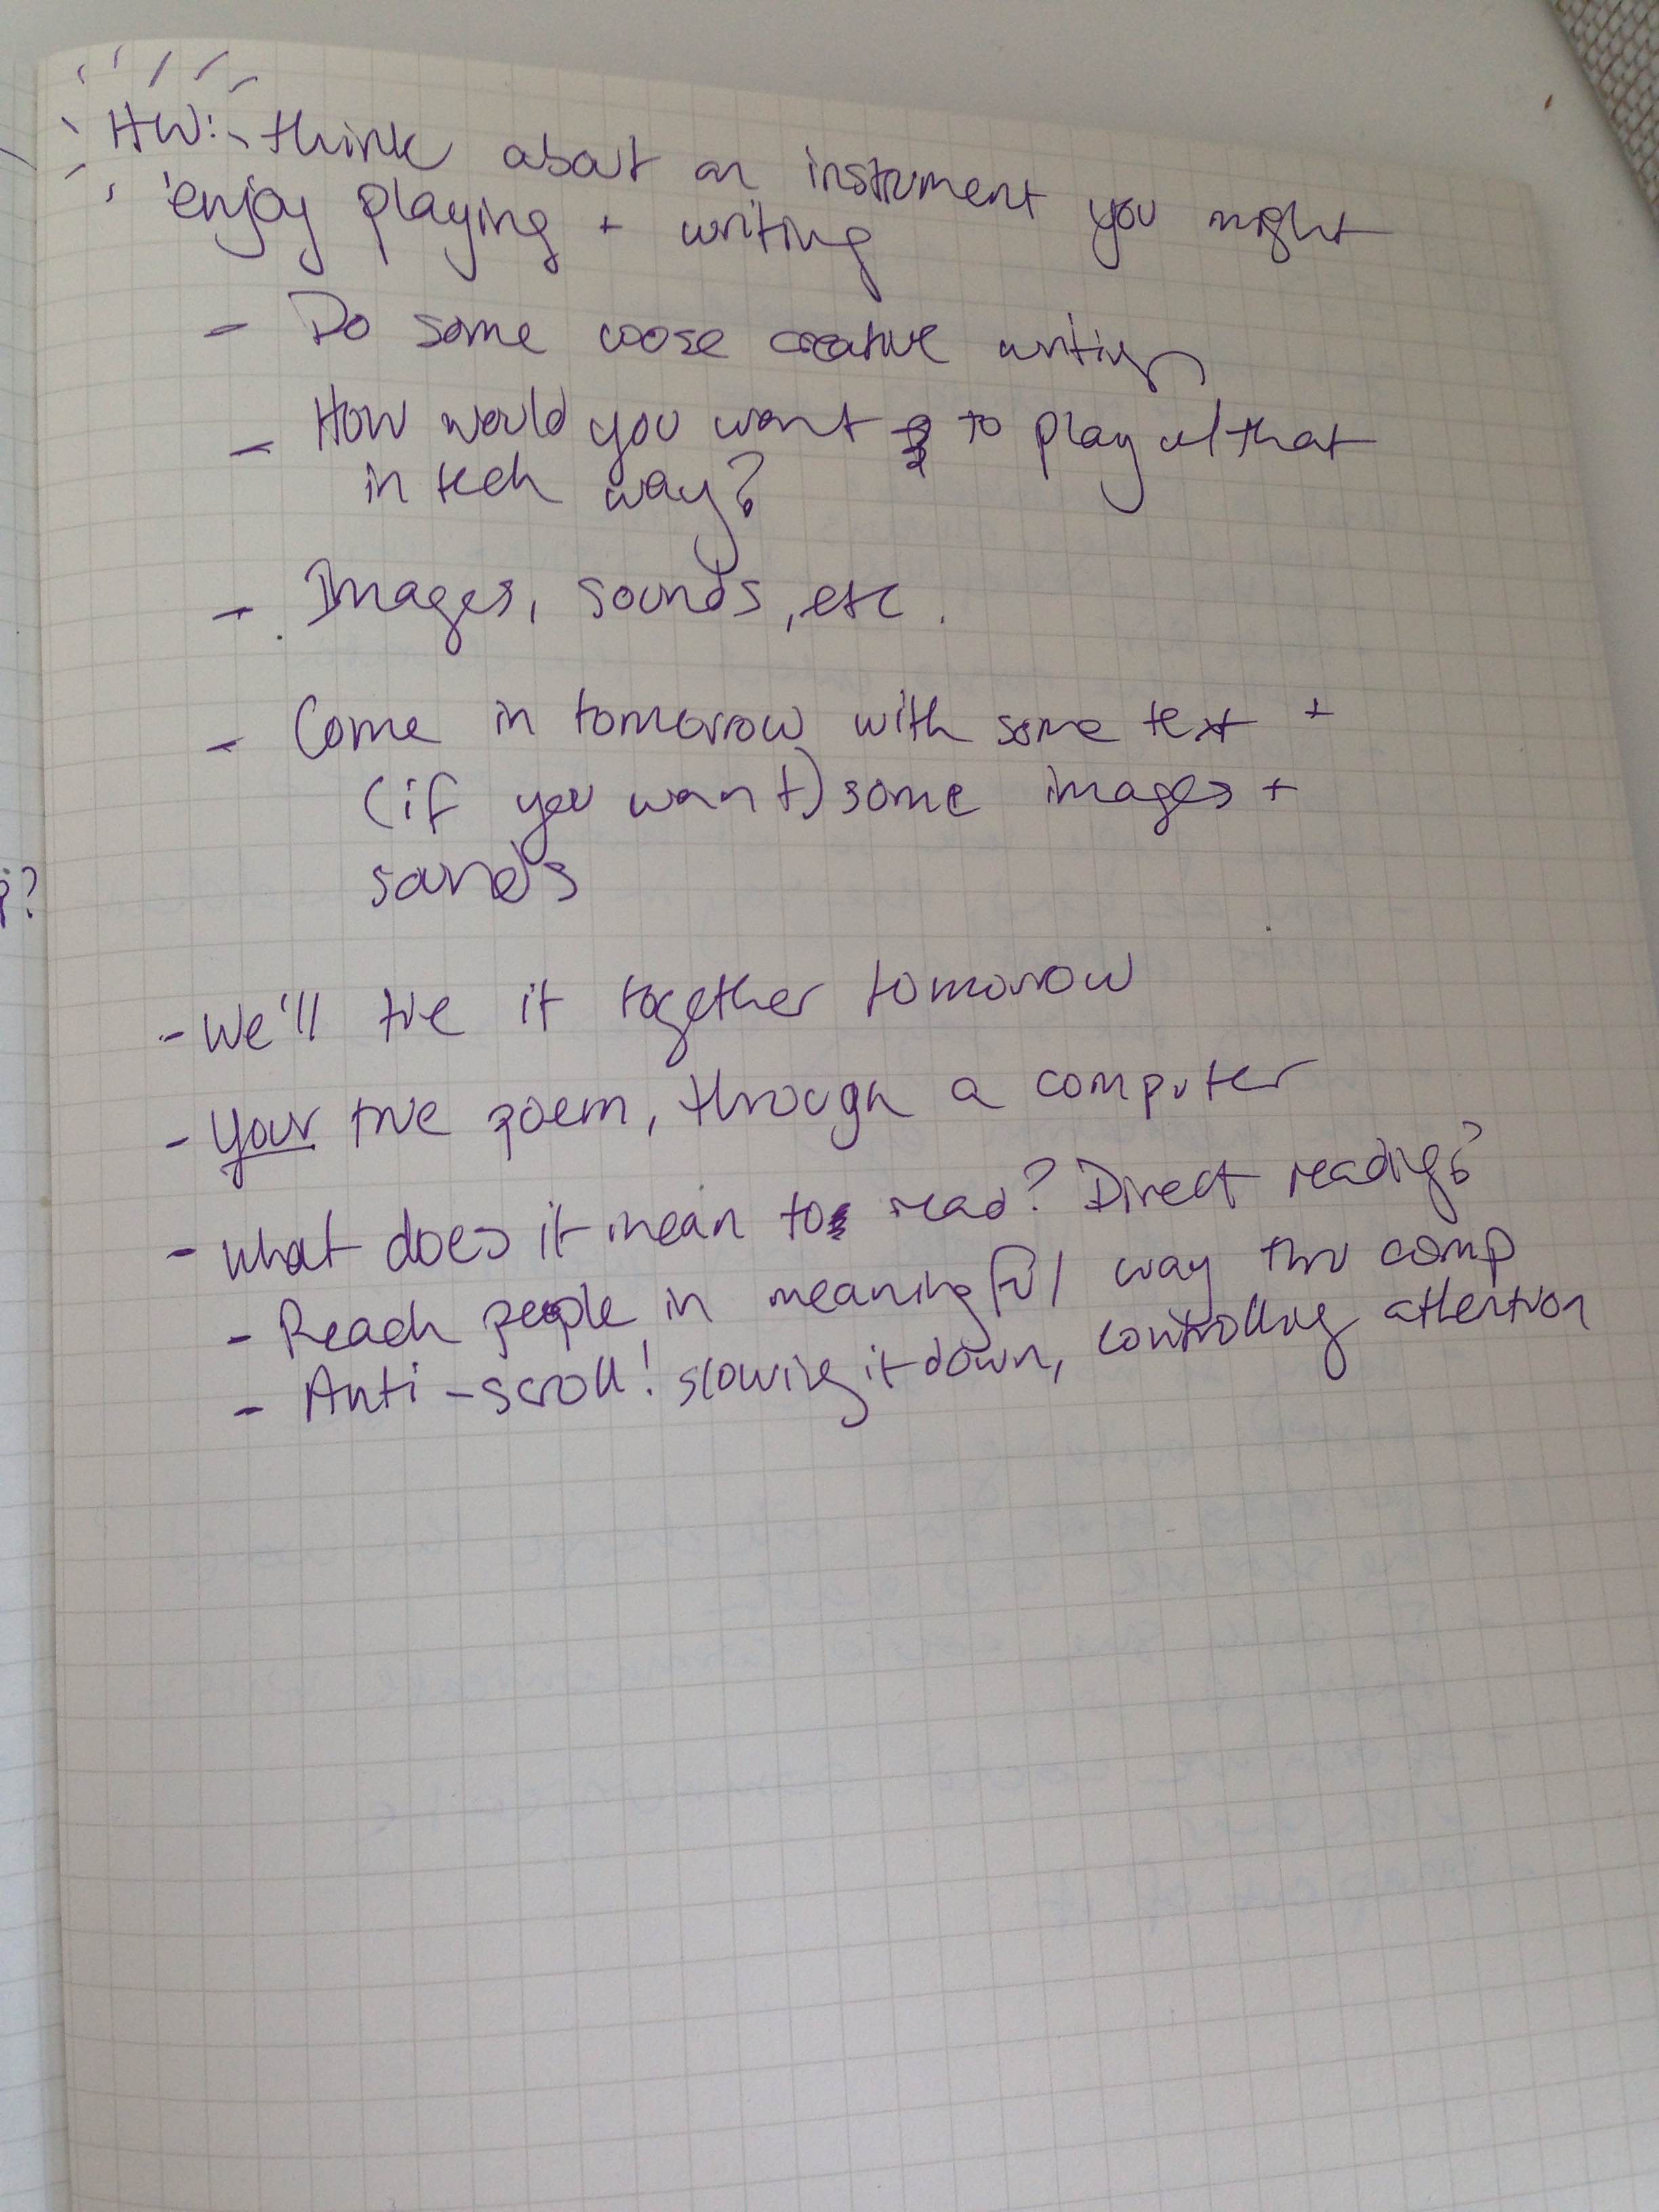 HW: - think about an instrument you might
enjoy playing + writing
- Do some loose creative writing
- How would you want to play w/ that
in tech way?
- Images, sounds, etc.
- Come in tomorrow with some text +
(if you want) some images +
sounds
- We'll tie it together tomorrow
- Your true poem, through a computer
- What does it mean to read? Direct reading?
- Reach people in meaningful way thru comp
- Anti-scroll! slowing it down, controlling attention
?